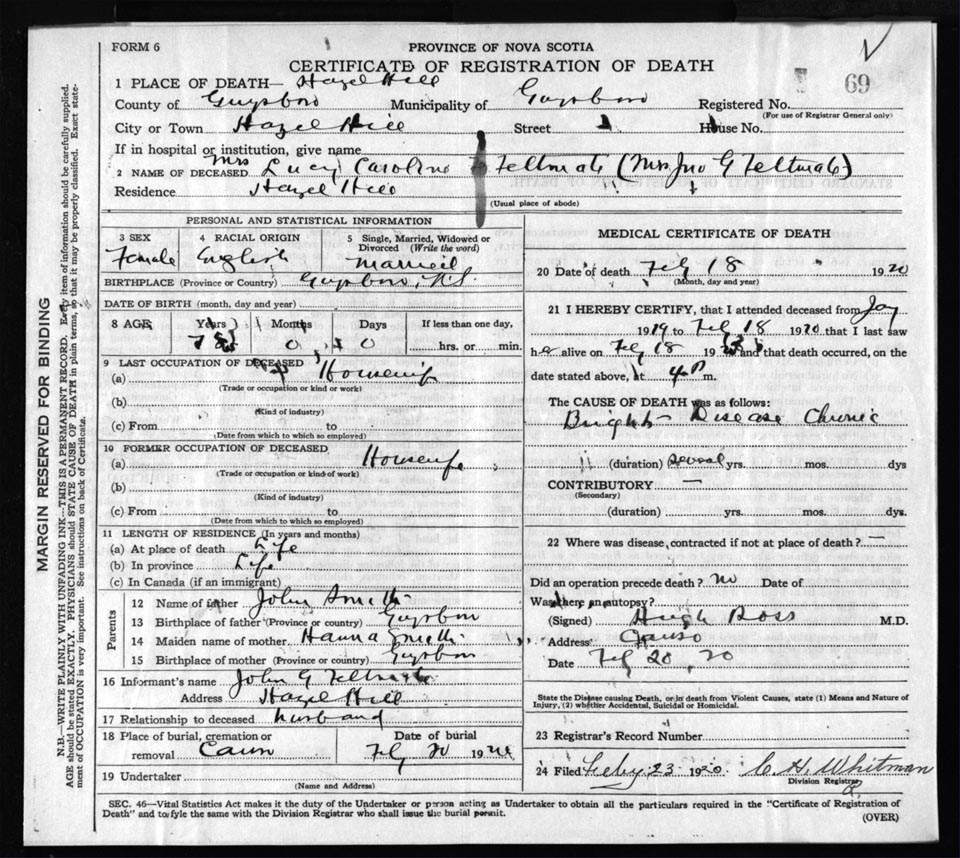 FORM 6
PROVINCE OF NOVA SCOTIA
CERTIFICATE OF REGISTRATION OF DEATH
69
1 PLACE OF DEATH— Hazel Hill
County of Guysboro Municipality of Guysboro Registered No.
(For use of Registrar General only)
City or Town Hazel Hill Street House No.
If in hospital or institution, give name
2 NAME OF DECEASED Mrs Lucy Caroline Feltmate (Mrs Jno G Feltmate)
Residence Hazel Hill
(Usual place of abode)
PERSONAL AND STATISTICAL INFORMATION
3 SEX 4 RACIAL ORIGIN 5 Single, Married, Widowed or Divorced (Write the word)
Female English Married
BIRTHPLACE (Province or Country) Guysboro, N.S.
DATE OF BIRTH (month, day and year)
8 AGE Years Months Days If less than one day,
78 0 0 hrs. or min.
9 LAST OCCUPATION OF DECEASED
(a) Housewife
(Trade or occupation or kind or work)
(b)
(Kind of industry)
(c) From to
(Date from which to which so employed)
10 FORMER OCCUPATION OF DECEASED
(a) Housewife
(Trade or occupation or kind of work)
(b)
(Kind of industry)
(c) From to
(Date from which to which so employed)
11 LENGTH OF RESIDENCE (In years and months)
(a) At place of death Life
(b) In province Life
(c) In Canada (if an immigrant)
Parents
12 Name of father John Smith
13 Birthplace of father (Province or country) Guysboro
14 Maiden name of mother Hanna Smith
15 Birthplace of mother (Province or country) Guysboro
16 Informant's name John G Feltmate
Address Hazel Hill
17 Relationship to deceased husband
18 Place of burial, cremation or removal Canso Date of burial Feb 20 1920
19 Undertaker
(Name and Address)
MEDICAL CERTIFICATE OF DEATH
20 Date of death Feb 18 1920
(Month, day and year)
21 I HEREBY CERTIFY, that I attended deceased from
1919 to Feb 18 1920 that I last saw
her alive on Feb 18 and that death occurred, on the
date stated above, at 4 P m.
The CAUSE OF DEATH was as follows:
Brights Disease Chronic
(duration) several yrs. mos. dys
CONTRIBUTORY —
(Secondary)
(duration) yrs. mos. dys.
22 Where was disease contracted if not at place of death? —
Did an operation precede death? no Date of
Was there an autopsy?
(Signed) Hugh Ross M.D.
Address Canso
Date Feb 20, 20
State the Disease causing Death, or in death from Violent Causes, state (1) Means and Nature of Injury, (2) whether Accidental, Suicidal or Homicidal.
23 Registrar's Record Number
24 Filed Feby 23 1920. C. H. Whitman
Division Registrar
SEC. 46—Vital Statistics Act makes it the duty of the Undertaker or person acting as Undertaker to obtain all the particulars required in the "Certificate of Registration of
Death" and to fyle the same with the Division Registrar who shall issue the burial permit.
(OVER)
MARGIN RESERVED FOR BINDING
N.B.—WRITE PLAINLY WITH UNFADING INK—THIS IS A PERMANENT RECORD. Every item of information should be carefully supplied.
AGE should be stated EXACTLY. PHYSICIANS should STATE CAUSE OF DEATH in plain terms, so that it may be properly classified. Exact statement of OCCUPATION is very important. See instructions on back of Certificate.